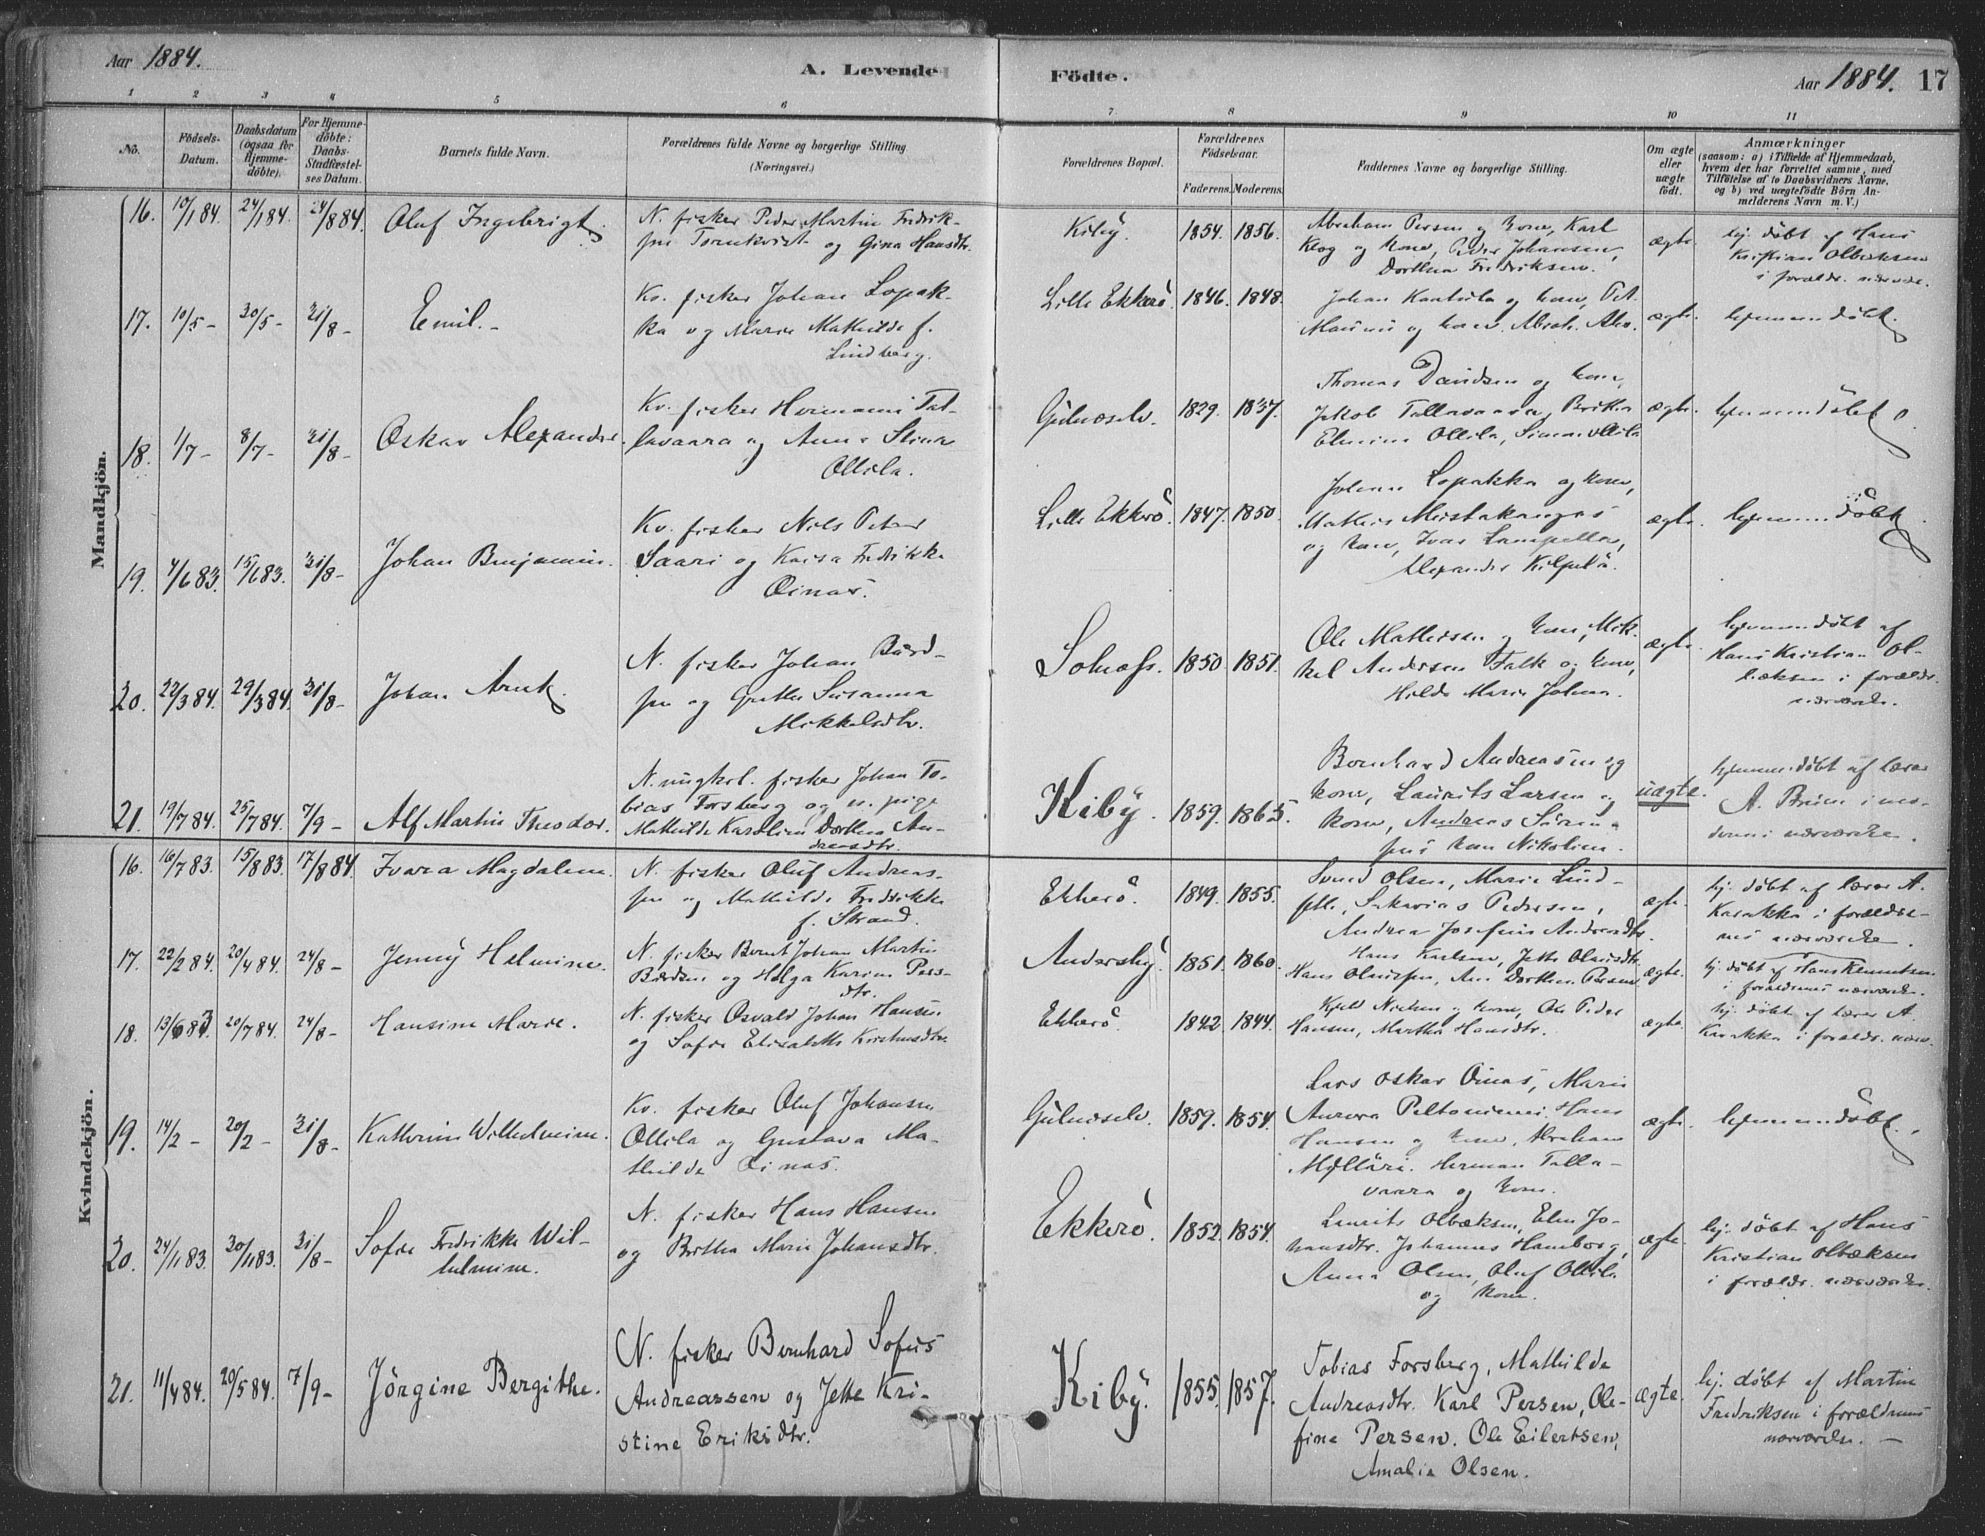 Aar 1884.
A. Levende
Födte.
Aar 1884. 17
1 2 3 4 5 6 7 8 9 10 11
No.
Födsels-
Datum.
Daabsdatum
(ogsaa for
Hjemme-
döbte).
For Hjemme-
döbte:
Daabs-
Stadfæstel-
ses Datum.
Barnets fulde Navn.
Forældrenes fulde Navne og borgerlige Stilling
(Næringsvei.)
Forældrenes Bopæl.
Forældrenes
Födselsaar.
Faderens. Moderens.
Faddernes Navne og borgerlige Stilling.
Om ægte
eller
uægte
födt.
Anmærkninger
(saasom: a) i Tilfælde af Hjemmedaab,
hvem der har forrettet samme, med
Tilföielse af to Daabsvidners Navne,
og b) ved uægtefödte Börn An-
melderens Navn m. V.)
Mandkjön.
16. 10/1 84. 24/1 84. 24/8 84. Oluf Ingebrigt.
N. fisker Peder Martin Fredrik-
sen Tornkvist og Gina Hansdtr.
Kiby. 1854. 1856.
Abraham Persen og kone, Karl
Klog og kone, Peder Johansen,
Dorthea Fredriksen.
ægte.
hj. döbt af Hans
Kristian Olbæksen
i forældr. nærvær.
17. 10/5 - 30/5 - 31/8 - Emil. -
Kv. fisker Johan Lopak-
ka og Marie Mathilde f.
Lindberg.
Lille Ekkerö. 1846. 1848.
Johan og kone, Pet.
og kone.
ægte.
hjemmedöbt.
18. 1/7 - 8/7 - 31/8 - Oskar Alexander.
Kv. fisker Hermanni Tal-
lavaara og Anna Stina
Ollila.
Gulnæselv. 1829. 1837.
Thomas Davidsen og kone,
Jakob Tallavaara, Brita
Elmina Ollila, Simon Ollila
ægte.
hjemmedöbt.
19. 7/6 83. 15/6 83. 31/8 - Johan Benjamin.
Kv. fisker Nils Petter
Saari og Kaisa Fredrikke
Oinas.
Lille Ekkerö. 1847. 1850.
Johan Lopakka og kone,
Mathis Mustakangas
og kone, Ivar Lampella,
Alexander Kilpelä.
ægte.
hjemmedöbt.
20. 22/3 84. 29/3 84. 31/8 - Johan Arnt.
N. fisker Johan Bærd-
sen og Grethe Susanna
Mikkelsdtr.
Solnæss. 1850. 1851.
Ole Mathisen og kone, Mik-
kel Andersen Falk og kone,
Hilda Marie Johns.
ægte.
hjemmedöbt af
Hans Kristian Ol-
bæksen i forældr.
nærværelse.
21. 19/7 84. 25/7 84. 7/9 - Alf Martin Theodor.
N. ungkrl. fisker Johan To-
bias Forsberg og n. pige
Mathilde Karoline Dorthea An-
dreasdtr.
Kiby. 1859. 1865.
Bernhard Andreasen og
kone, Laurits Larsen og
kone, Andreas Sören-
sens kone Nikoline.
uægte.
hjemmedöbt af lærer
A. Bruun i mo-
derens nærværelse.
Kvindekjön.
16. 16/7 83. 15/8 83. 17/8 84. Ivara Magdalena.
N. fisker Oluf Andreas-
sen og Mathilde Fredrikke
f. Strand.
Ekkerö. 1849. 1855.
Svend Olsen, Marie Lind-
Sakarias Pedersen,
Andrea Josefine Andreasdtr.
ægte.
hj. döbt af lærer A.
Karakka i foreldre-
nes nærværelse.
17. 22/2 84. 20/4 84. 24/8 - Jenny Helmine.
N. fisker Bernt Johan Martin
Bærdsen og Helga Karine Pers-
dtr.
Andersby. 1851. 1860.
Hans Karlsen, Jette Olausdtr.
Hans Olaussen, Ane Dorthea Persen.
ægte.
hj. döbt af Hans Kennutsen
i forældrenes nærværelse.
18. 13/6 83. 20/7 84. 24/8 - Hansine Marie.
N. fisker Osvald Johan Hansen
og Sofie Elisabeth
Ekkerö. 1842. 1844.
Kjeld Nielsen og kone, Ole Peder
Hansen, Martha Hansdtr.
ægte.
hj. döbt af lærer A.
Karakka i forældr. nærv.
19. 14/2 - 20/2 - 31/8 - Kathrine Wilhelmine.
Kv. fisker Oluf Johansen
Ollila og Gustava Ma-
thilde Oinas.
Gulnæselv. 1859. 1854.
Lars Oskar Oinas, Marie
Aurora Peltoniemi, Hans
Hansen og kone, Abraham
Mylläri. Herman Talla-
vaara og kone.
ægte.
hjemmedöbt.
20. 24/11 83. 30/11 83. 31/8 - Sofie Fredrikke Wil-
helmine.
N. fisker Hans Hansen
og Bertha Marie Johansdtr.
Ekkerö. 1852. 1854.
Laurits Olbæksen, Elen Jo-
hansdtr. Johannes Hamborg,
Anna Olsen, Oluf Ollila
og kone.
ægte.
hj. döbt af Hans
Kristian Olbæksen
i forældr. nærværelse.
21. 11/4 84. 20/5 84. 7/9 - Jörgine Bergithe.
N. fisker Bernhard Sofus
Andreassen og Jette Kri-
stine Eriksdtr.
Kiby. 1855. 1857.
Tobias Forsberg, Mathilde
Andreasdtr. Karl Persen, Ole-
fine Persen. Ole Eilertsen,
Amalie Olsen.
ægte.
hj. döbt af Martin
Fredriksen i forældrenes
nærværelse. -